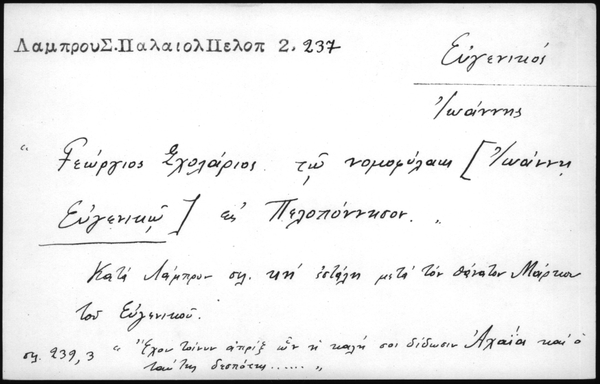 ΛαμπρουΣ.ΠαλαιολΠελοπ 2. 237
Εὐγενικός
Ἰωάννης
"Γεώργιος Σχολάριος τῷ νομοφύλακι [Ἰωάννῃ
Εὐγενικῷ] εἰς Πελοπόννησον."
Κατά Λάμπρον σελ. ἐστάλη μετά τόν θάνατον Μάρκου
τοῦ Εὐγενικοῦ.
σελ. 239, 3 "Ἔχου τοίνυν ἀπρίξ ὧν ἡ καλή σοι δίδωσιν Ἀχαΐα καί ὁ
ταύτης δεσπότης......"